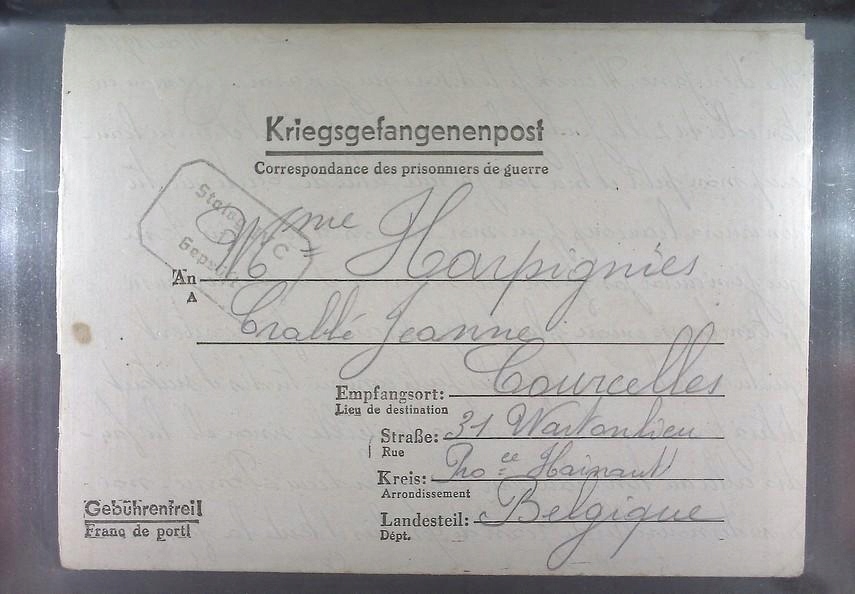 Kriegsgefangenenpost
Correspondance des prisonniers de guerre
Geprüft
Mme Harpignies
An
A
Crabbé Jeanne
Empfangsort: Courcelles
Lieu de destination
Straße: 31 Wartonlieu
Rue
Kreis: Proce Hainaut
Arrondissement
Landesteil: Belgique
Dépt.
Gebührenfrei!
Franc de port!